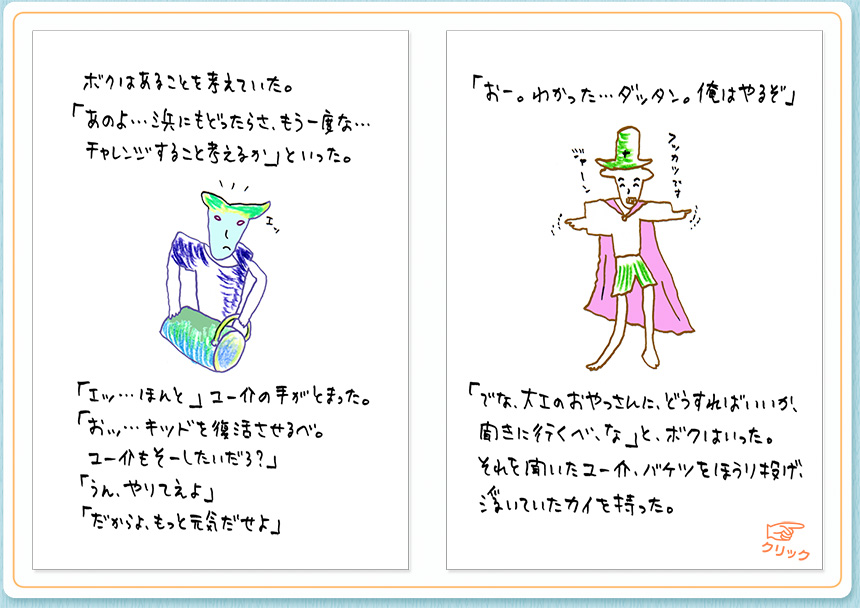 ボクはあることを考えていた。
「あのよ…浜にもどったらさ、もう一度な…
チャレンジすること考えるか」といった。
エッ
「エッ…ほんと」ユー介の手がとまった。
「おッ…キッドを復活させるべ。
ユー介もそーしたいだろ?」
「うん、やりてえよ」
「だからよ、もっと元気だせよ」
「おー。わかった…ダッタン。俺はやるぞ」
フッカツです
ジャーン
「でな、大工のおやっさんに、どうすればいいか、
聞きに行くべ、な」と、ボクはいった。
それを聞いたユー介、バケツをほうり投げ、
浮いていたカイを持った。
クリック